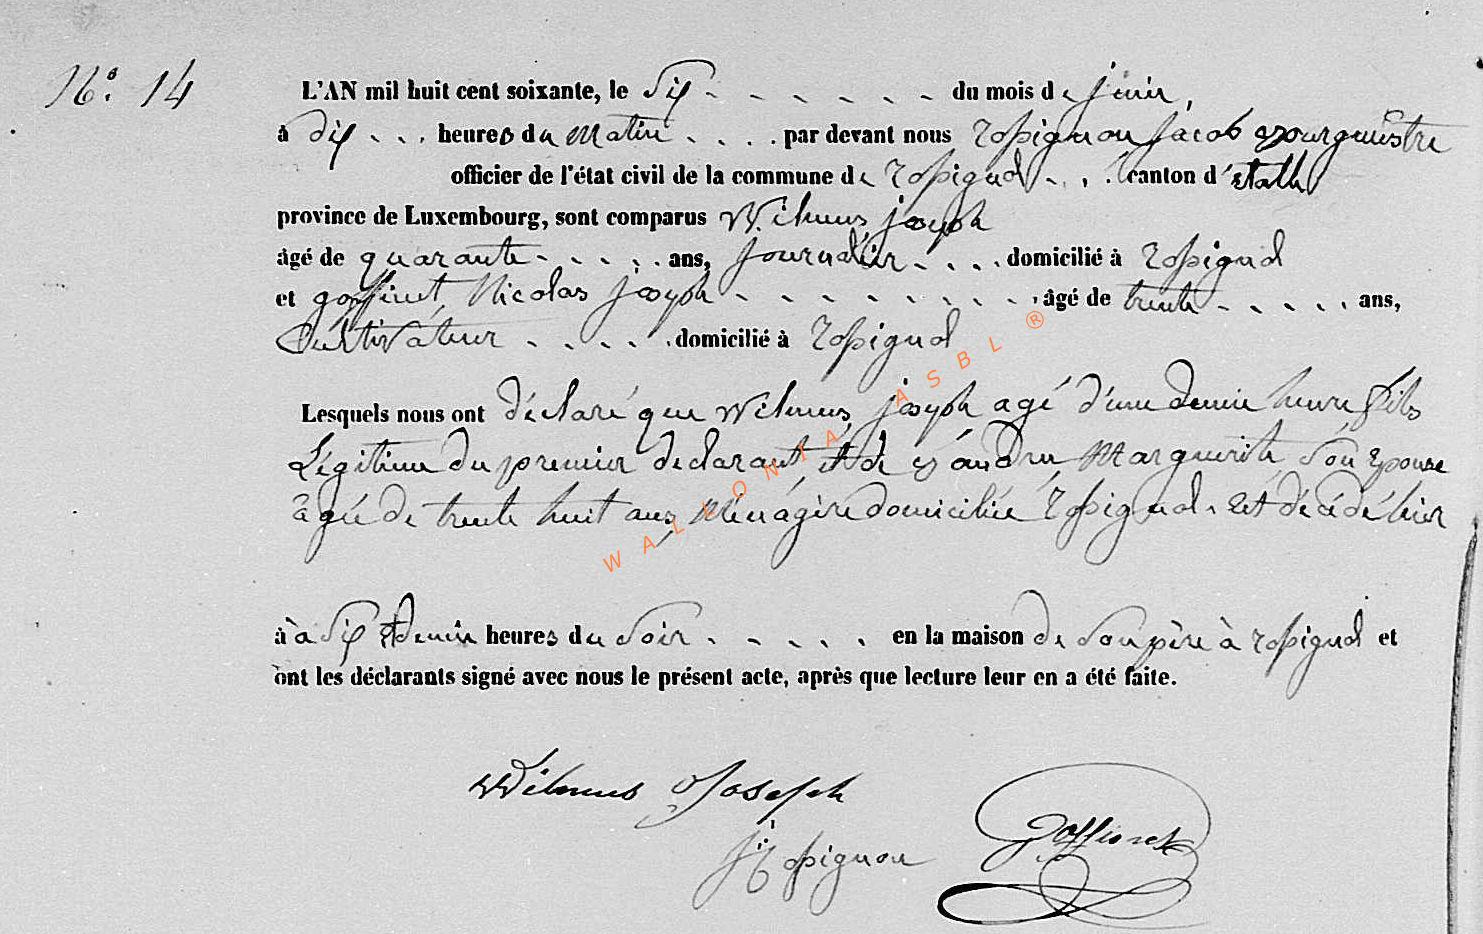 N°. 14
L'AN mil huit cent soixante, le Six du mois de juin,
à dix heures du matin par devant nous Rossignon Jacob Bourgmestre
officier de l'état civil de la commune de Rossignol canton d'Etalle
province de Luxembourg, sont comparus Wilmus, joseph
âgé de quarante ans, Journalier domicilié à Rossignol
et goffinet, Nicolas joseph âgé de trente ans,
Cultivateur domicilié à Rossignol
Lesquels nous ont déclaré que Wilmus, joseph agé d'une demie heure fils
Légitime du premier declarant et de Marguerite son Epouse
âgée de trente huit ans, Ménagère domiciliée Rossignol. Est décédé hier
à à Six et demie heures du Soir en la maison de Son père à Rossignol et
ont les déclarants signé avec nous le présent acte, après que lecture leur en a été faite.
Wilmus Joseph
Goffinet
J Rossignon
WALLONIA ASBL ®